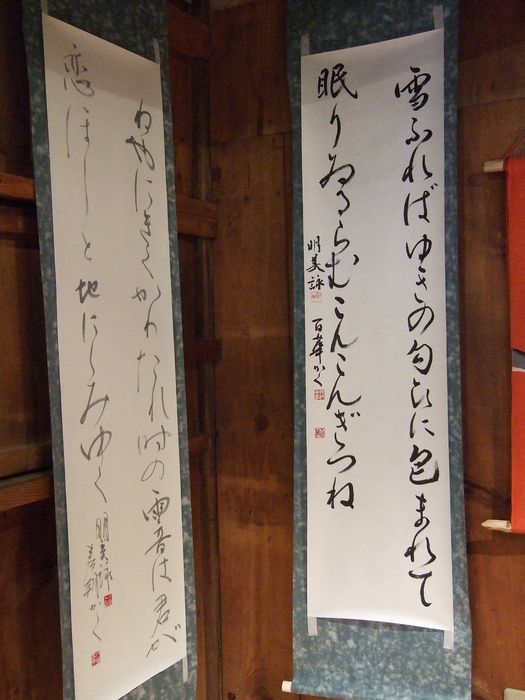 雪ふればゆきの匂ひに包まれて
眠りゐるらむこんこんぎつね
明美詠
百華かく
かわたれ時の雨音は君が
恋ほしと地にしみゆく
明美詠
かく